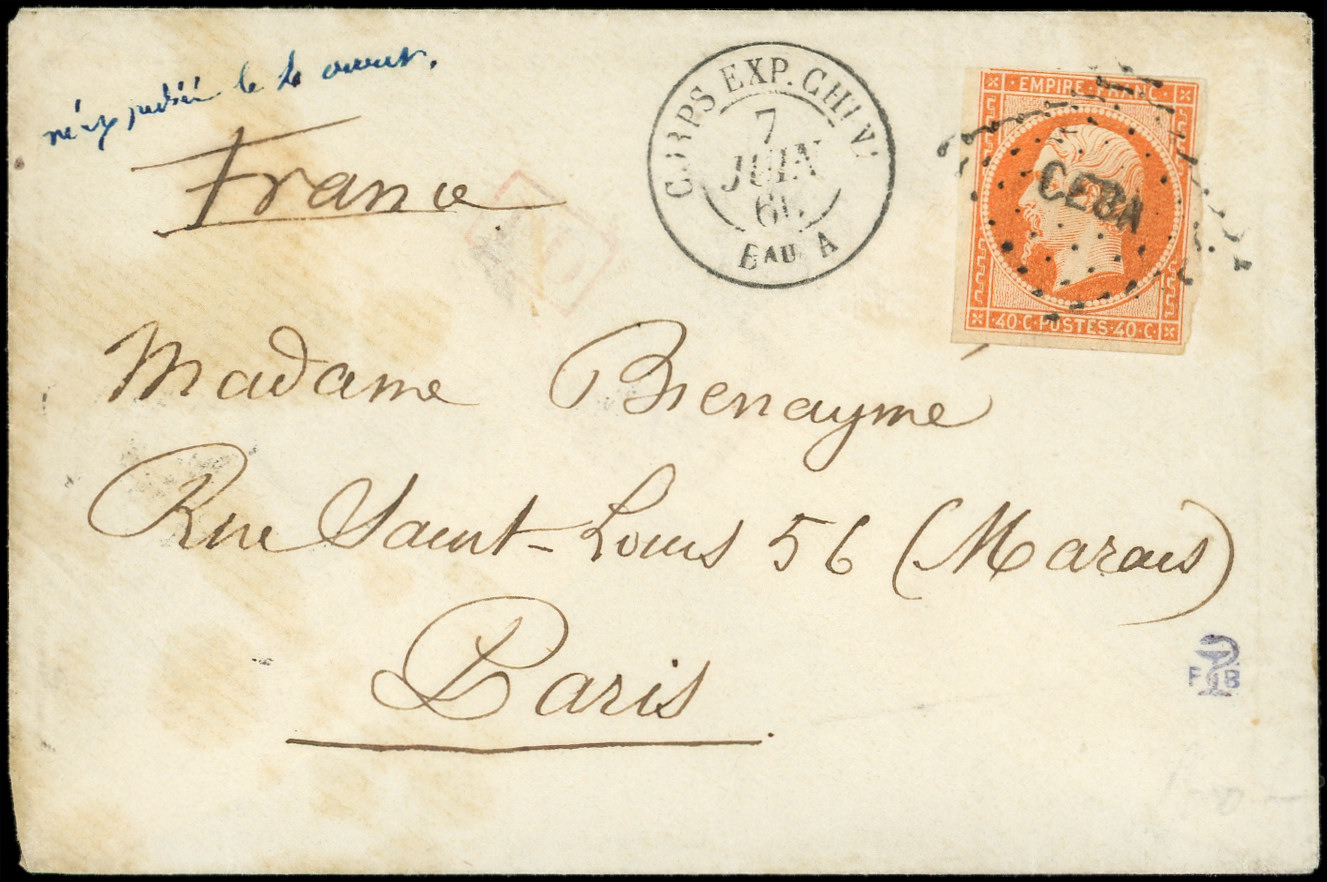 France
CORPS EXP. CHINE
7
JUIN
BAU. A
EMPIRE FRANC
CEBA
40·C·POSTES·40·C
Madame Bienaymé
Rue Saint-Louis 56 (Marais)
Paris
F B